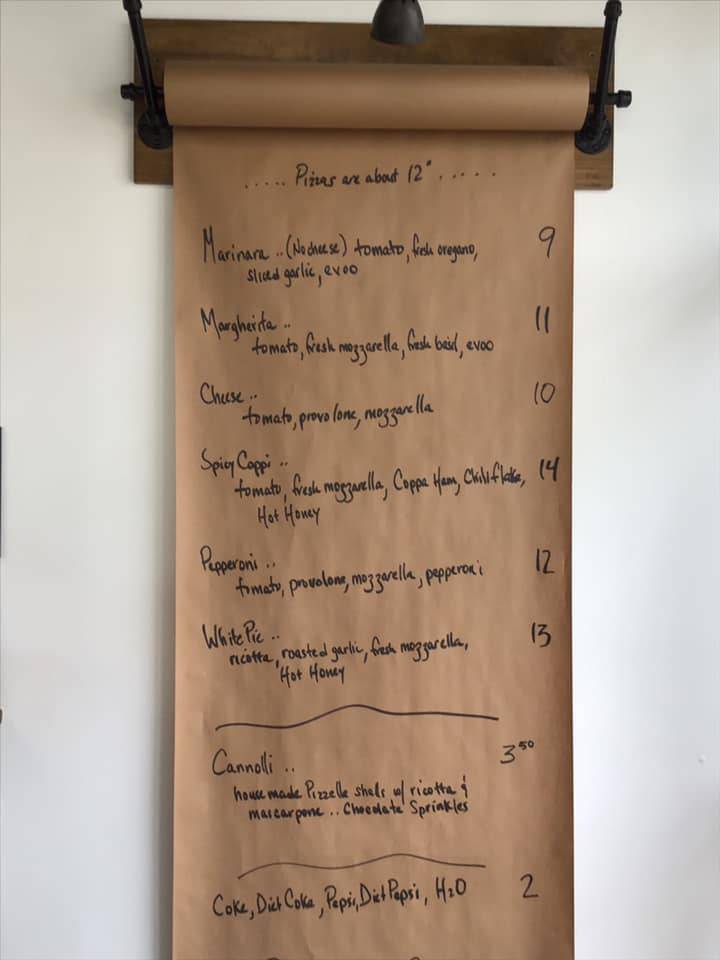 ..... Pizzas are about 12" .....
Marinara .. (No cheese) tomato, fresh oregano, 9
sliced garlic, evoo
Margherita .. 11
tomato, fresh mozzarella, fresh basil, evoo
Cheese .. 10
tomato, provolone, mozzarella
Spicy Coppi .. 14
tomato, fresh mozzarella, Coppa Ham, Chili flake,
Hot Honey
Pepperoni .. 12
tomato, provolone, mozzarella, pepperoni
White Pie .. 13
ricotta, roasted garlic, fresh mozzarella,
Hot Honey
Cannolli .. 3 50
house made Pizzelle shells w/ ricotta &
mascarpone .. Chocolate Sprinkles
Coke, Diet Coke, Pepsi, Diet Pepsi, H2O 2